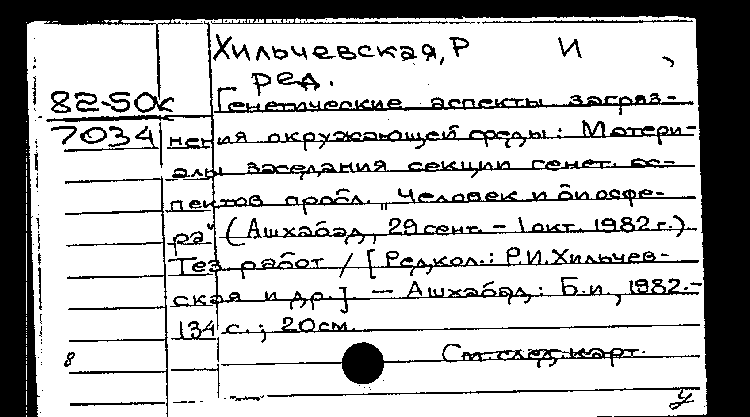 Хильчевская, Р И
ред.
82-50к
7034
Генетические аспекты загряз-
нения окружающей среды: Матери-
алы заседания секции генет. ас-
пектов пробл. „Человек и биосфе-
ра" (Ашхабад, 29 сент. - 1 окт. 1982 г.)
Тез. работ / [Редкол.: Р.И. Хильчев-
ская и др.]. — Ашхабад: Б.и., 1982.-
134 с.; 20 см.
См. след. карт.
8
у